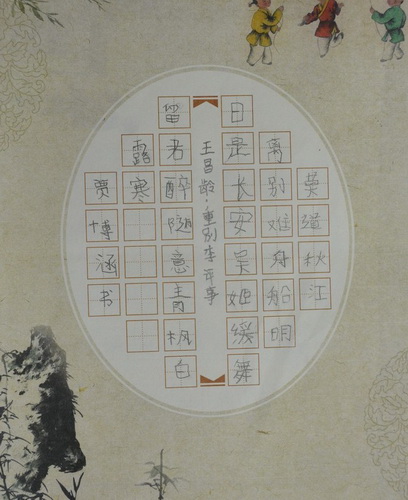 莫道秋江
离别难舟船明
日是长安吴姬缓舞
王昌龄·重别李评事
留君醉随意青枫白
露寒
贾博涵书